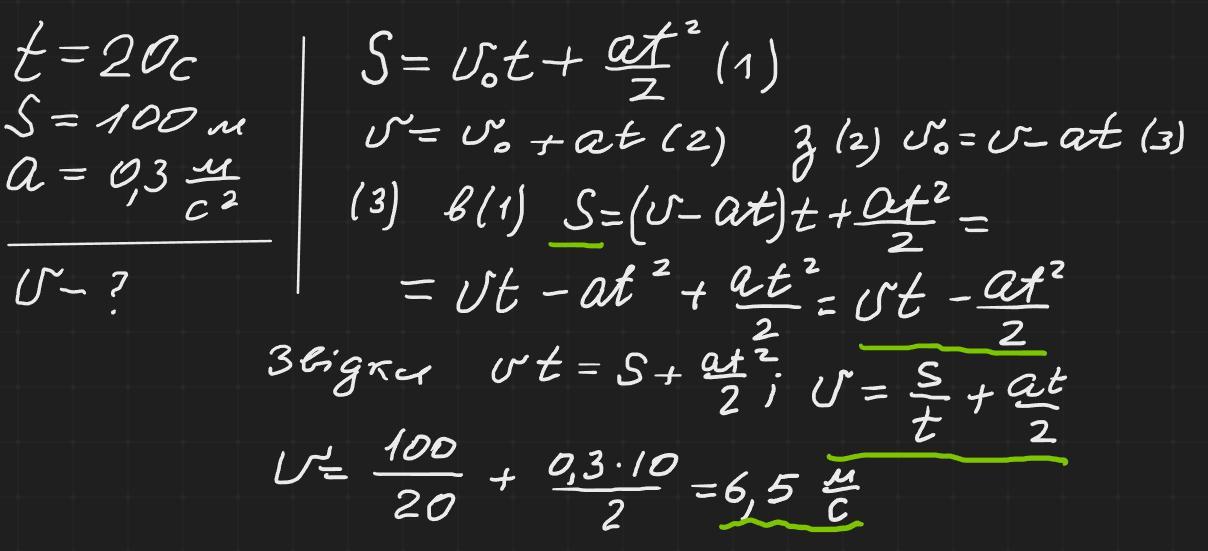 t = 20c
S = 100 м
a = 0,3 м/c²
v - ?
S = v₀t + at²/2 (1)
v = v₀ + at (2) з (2) v₀ = v - at (3)
(3) в (1) S = (v - at)t + at²/2 =
= vt - at² + at²/2 = vt - at²/2
Звідки vt = S + at²/2; v = S/t + at/2
v = 100/20 + 0,3·10/2 = 6,5 м/c